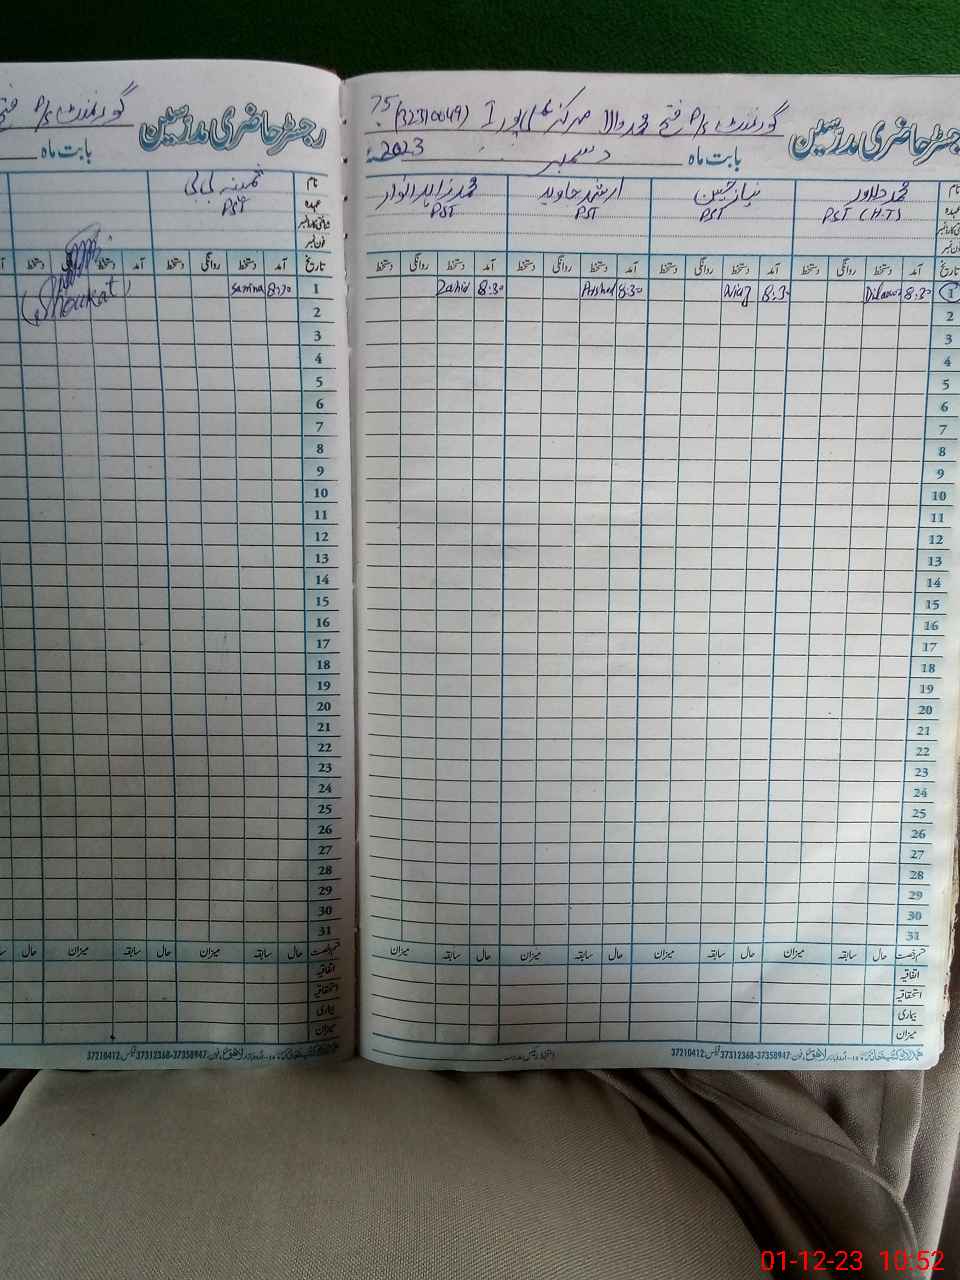 رجسٹر حاضری مدرسین
گورنمنٹ P/s فتح
بابت ماہ
نام
ثمینہ بی بی
عہدہ
PST
شناختی کارڈ نمبر
فون نمبر
تاریخ آمد دستخط روانگی دستخط آمد دستخط دستخط
1 8:30 Samina
(Shoukat)
2
3
4
5
6
7
8
9
10
11
12
13
14
15
16
17
18
19
20
21
22
23
24
25
26
27
28
29
30
31
قسم رخصت حال سابقہ میزان حال سابقہ میزان حال
اتفاقیہ
استحقاقیہ
بیماری
میزان
فون: 37312368-37358947 فیکس: 37210412
رجسٹر حاضری مدرسین
گورنمنٹ P/s فتح محمد والا مرکز پور I (32310049)
بابت ماہ دسمبر 2023
نام
محمد دلاور نیاز حسین ارشد جاوید محمد زاہد انوار
عہدہ
PST (H.T) PST PST PST
فون نمبر
تاریخ آمد دستخط روانگی دستخط آمد دستخط روانگی دستخط آمد دستخط روانگی دستخط آمد دستخط روانگی دستخط
1 8:30 Dilawar 8:30 Niaz 8:30 Arshad 8:30 Zahid
2
3
4
5
6
7
8
9
10
11
12
13
14
15
16
17
18
19
20
21
22
23
24
25
26
27
28
29
30
31
قسم رخصت حال سابقہ میزان حال سابقہ میزان حال سابقہ میزان حال سابقہ میزان
اتفاقیہ
استحقاقیہ
بیماری
میزان
فون: 37312368-37358947 فیکس: 37210412
01-12-23 10:52